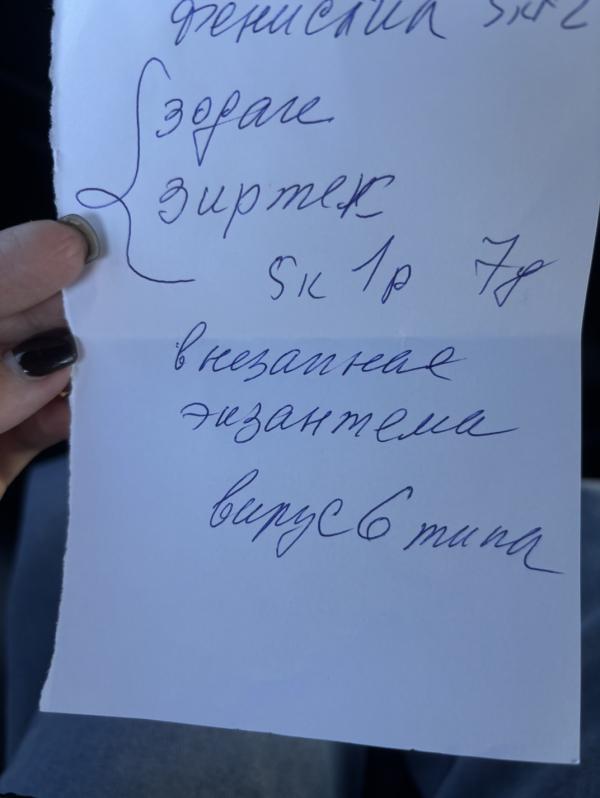 фенистил 5к
зодак
зиртек
5к 1р 7д
внезапная
экзантема
вирус 6 типа